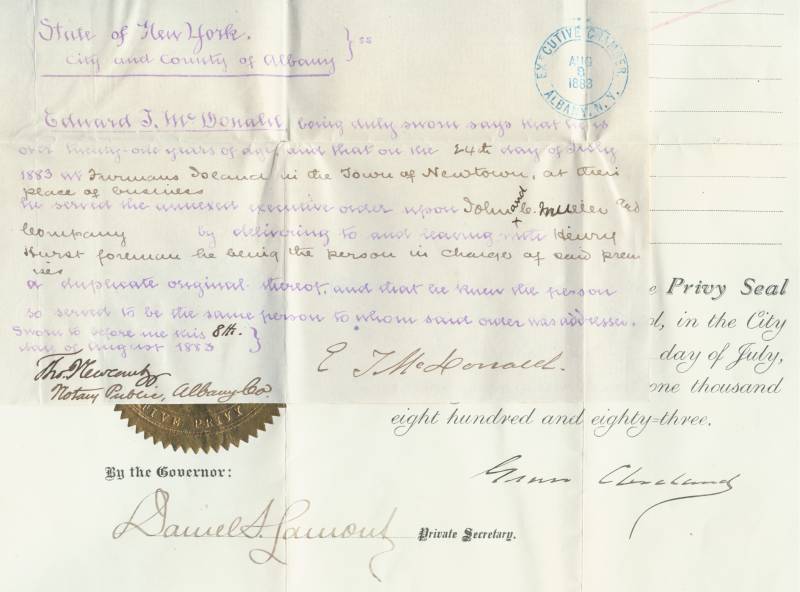 State of New York.
City and County of Albany } ss
EXECUTIVE CHAMBER
AUG
8
1883
ALBANY, N.Y.
Edward J. McDonald being duly sworn says that he is
over twenty-one years of age, and that on the 24th day of July
1883 at Furmans Island in the Town of Newtown, at their
place of business
he served the annexed executive order upon John C. Mueller and
and
Company by delivering to and leaving with Henry
Hurst foreman he being the person in charge of said prem
ises
a duplicate original thereof, and that he knew the person
so served to be the same person to whom said order was addressed.
Sworn to before me this 8th. }
day of August 1883
E J McDonald.
Tho. Newcomb
Notary Public, Albany Co.
e Privy Seal
d, in the City
day of July,
one thousand
eight hundred and eighty=three.
TIVE PRIVY
By the Governor:
Grover Cleveland
Daniel S. Lamont
Private Secretary.